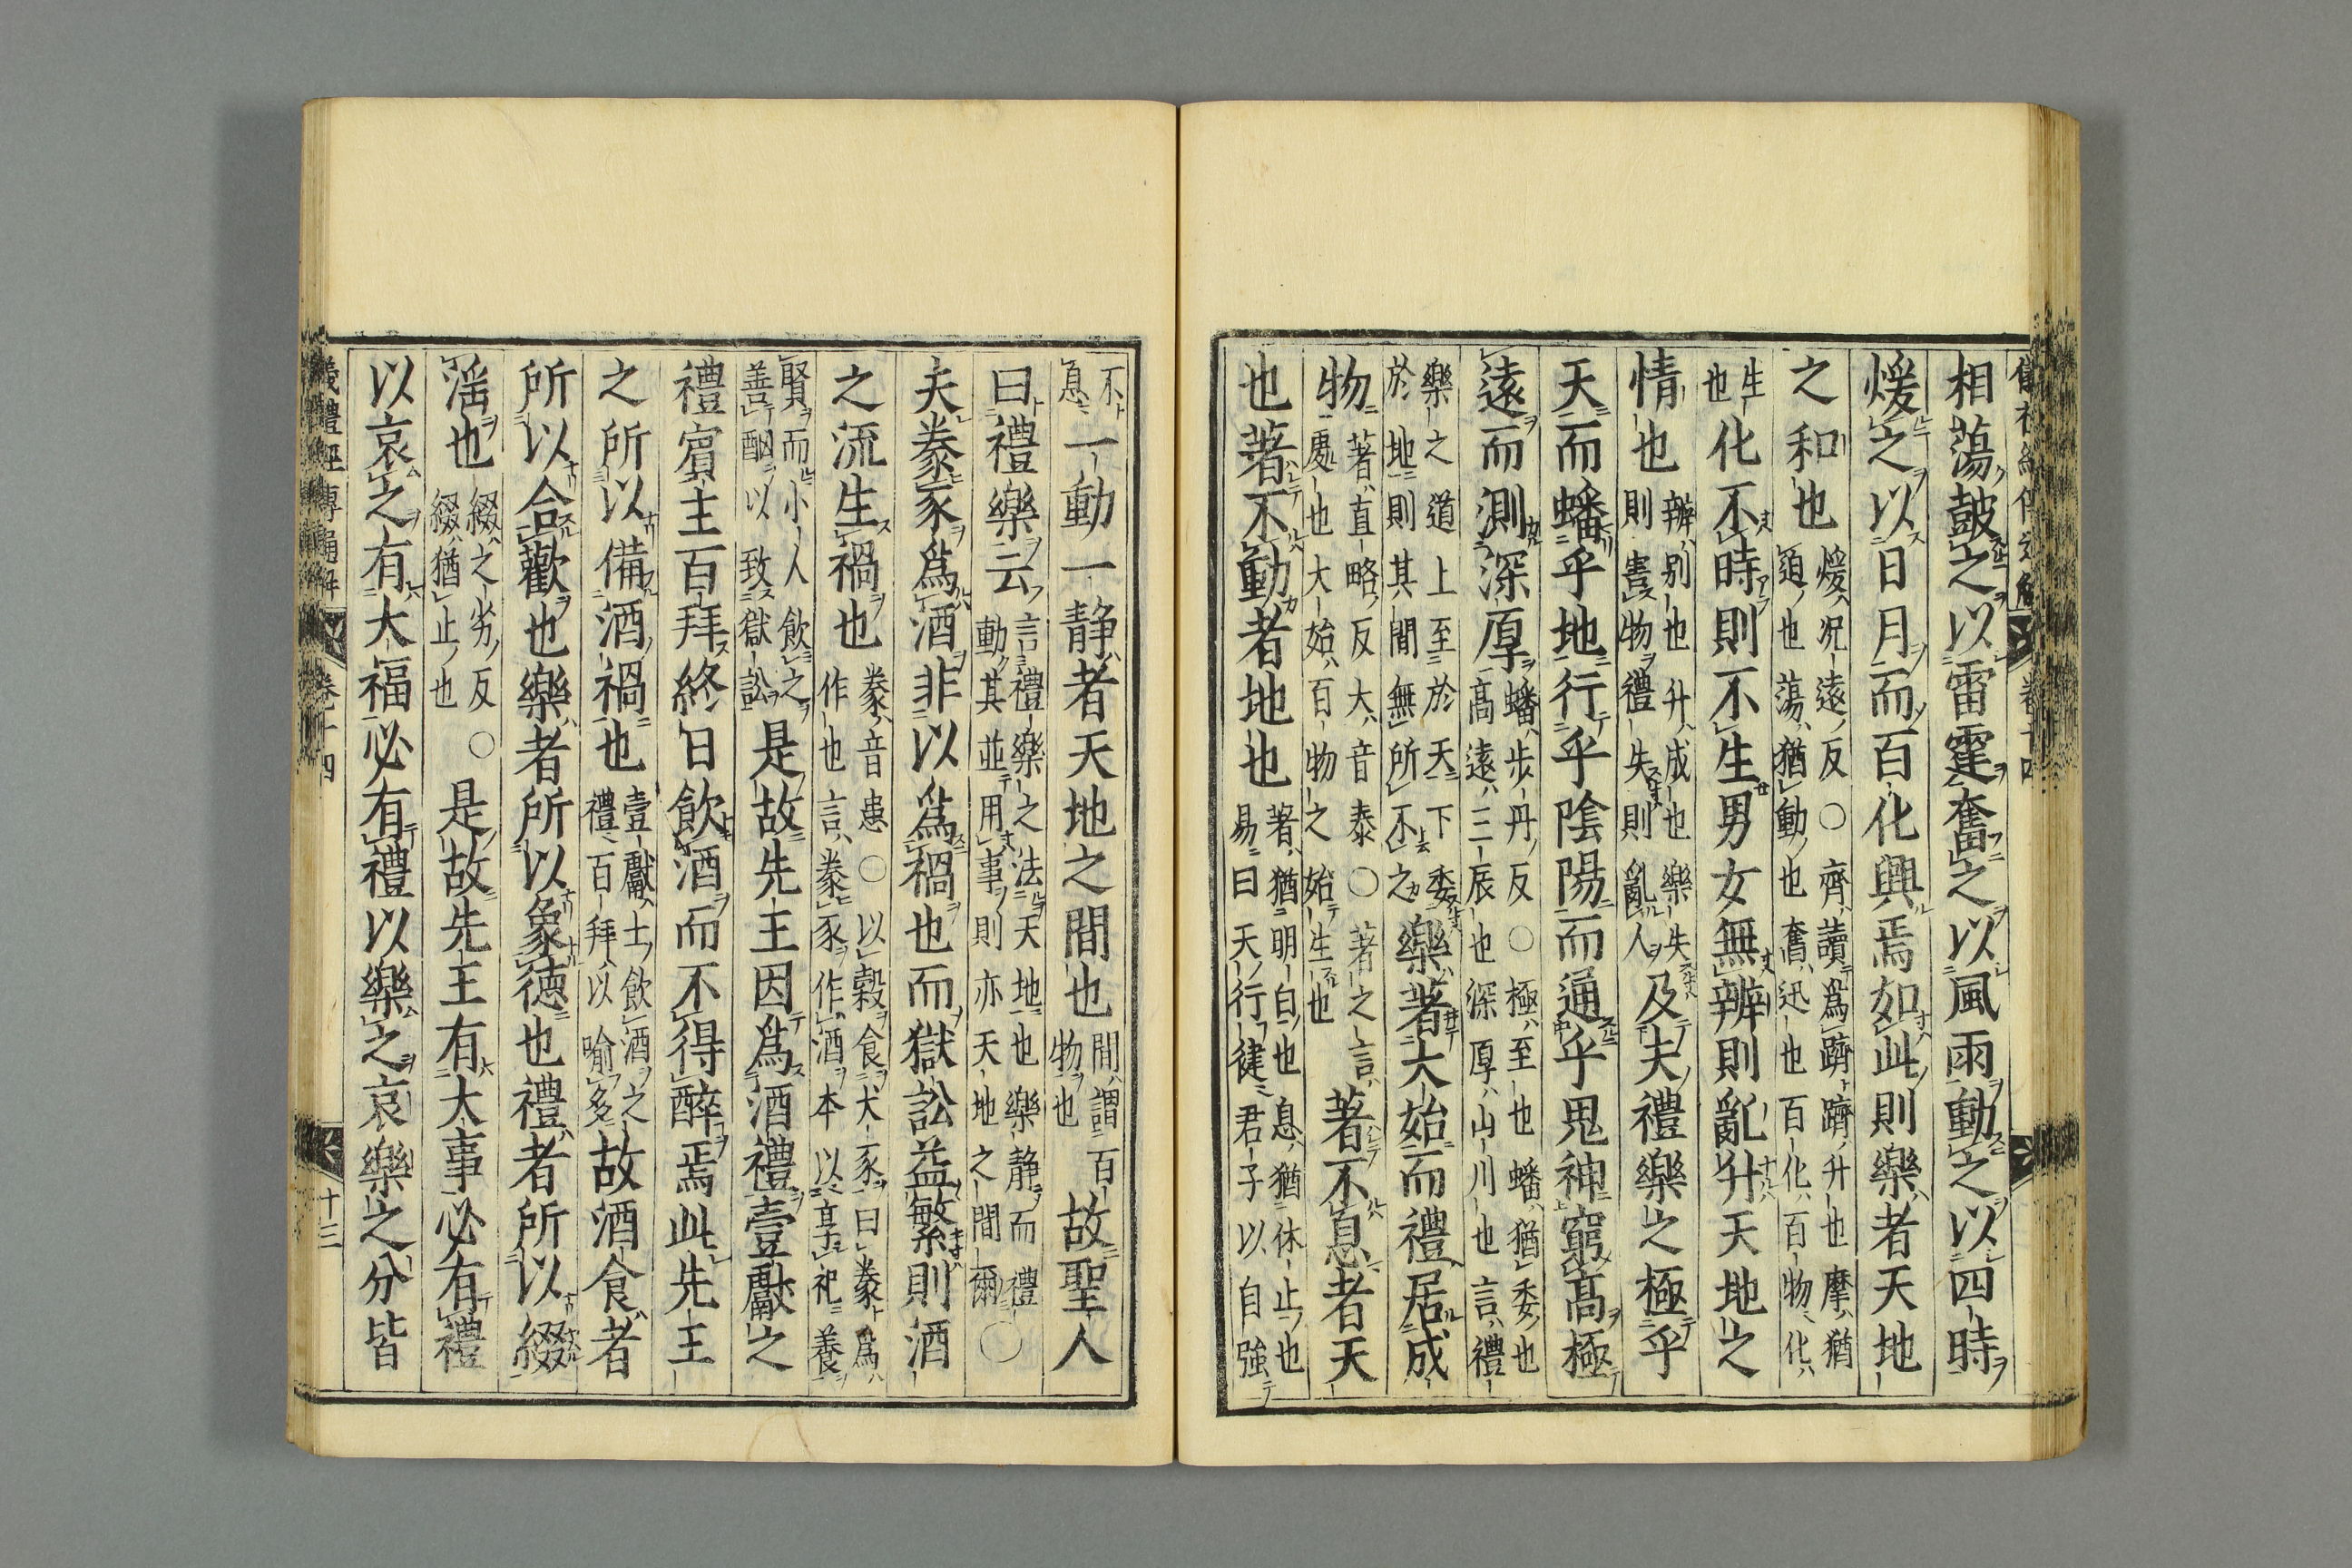 相蕩鼓之以雷霆奮之以風雨動之以四時
煖之以日月而百化興焉如此則樂者天地
之和也煖况遠反○齊讀爲躋躋升也摩猶
廹也蕩猶動也奮迅也百化百物化
生也化不時則不生男女無辨則亂升天地之
情也辨别也升成也樂失
則害物禮失則亂人及夫禮樂之極乎
天而蟠乎地行乎陰陽而通乎鬼神窮高極
遠而測深厚蟠歩丹反○極至也蟠猶委也
高遠三辰也深厚山川也言禮
樂之道上至於天下委
於地則其間無所不之樂著大始而禮居成
物著直略反大音泰○著之言
處也大始百物之始生也著不息者天
也著不動者地也著猶明白也息猶休止也
易曰天行健君子以自強
不
息一動一静者天地之間也間謂百
物也故聖人
曰禮樂云言禮樂之法天地也樂静而禮
動其並用事則亦天地之間爾○
夫豢豕爲酒非以爲禍也而獄訟益繁則酒
之流生禍也豢音患○以穀食犬豕曰豢爲
作也言豢豕作酒本以享祀養
賢而小人飲之
善酗以致獄訟是故先王因爲酒禮壹獻之
禮賓主百拜終日飲酒而不得醉焉此先王
之所以備酒禍也壹獻士飲酒之
禮百拜以喻多故酒食者
所以合歡也樂者所以象徳也禮者所以綴
淫也綴之劣反
綴猶止也○是故先王有大事必有禮
以哀之有大福必有禮以樂之哀樂之分皆
儀禮經傳通解 卷十四 十三